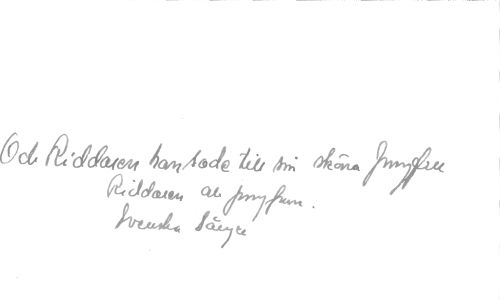 Och Riddaren han sade till sin sköna Jungfru
Riddaren och jungfrun.
Svenska Sånger